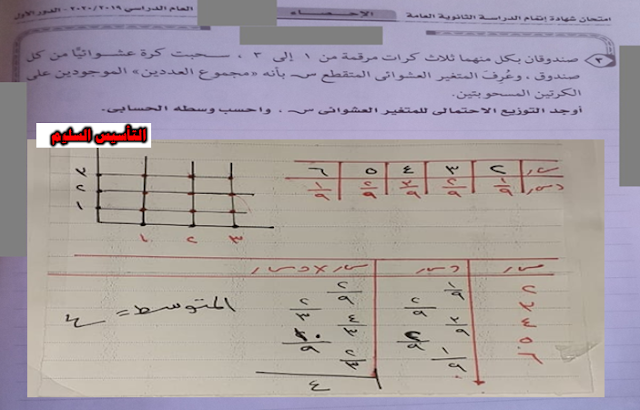 امتحان شهادة إتمام الدراسة الثانوية العامة الإحصاء العام الدراسي ٢٠٢٠/٢٠١٩ - الدور الأول
٣ صندوقان بكل منهما ثلاث كرات مرقمة من ١ إلى ٣ ، سحبت كرة عشوائيًا من كل
صندوق ، وعُرِفَ المتغير العشوائى المتقطع س بأنه «مجموع العددين» الموجودين على
الكرتين المسحوبتين.
أوجد التوزيع الاحتمالى للمتغير العشوائى س . واحسب وسطه الحسابى.
التأسيس السلوم
س ٢ ٣ ٤ ٥ ٦
د س ١/٩ ٢/٩ ٣/٩ ٢/٩ ١/٩
٣
٢
١
١ ٢ ٣
س د س س × د س
٢ ١/٩ ٢/٩
٣ ٢/٩ ٢/٣
٤ ٣/٩ ٤/٣
٥ ٢/٩ ١٠/٩
٦ ١/٩ ٢/٣
٤
المتوسط = ٤